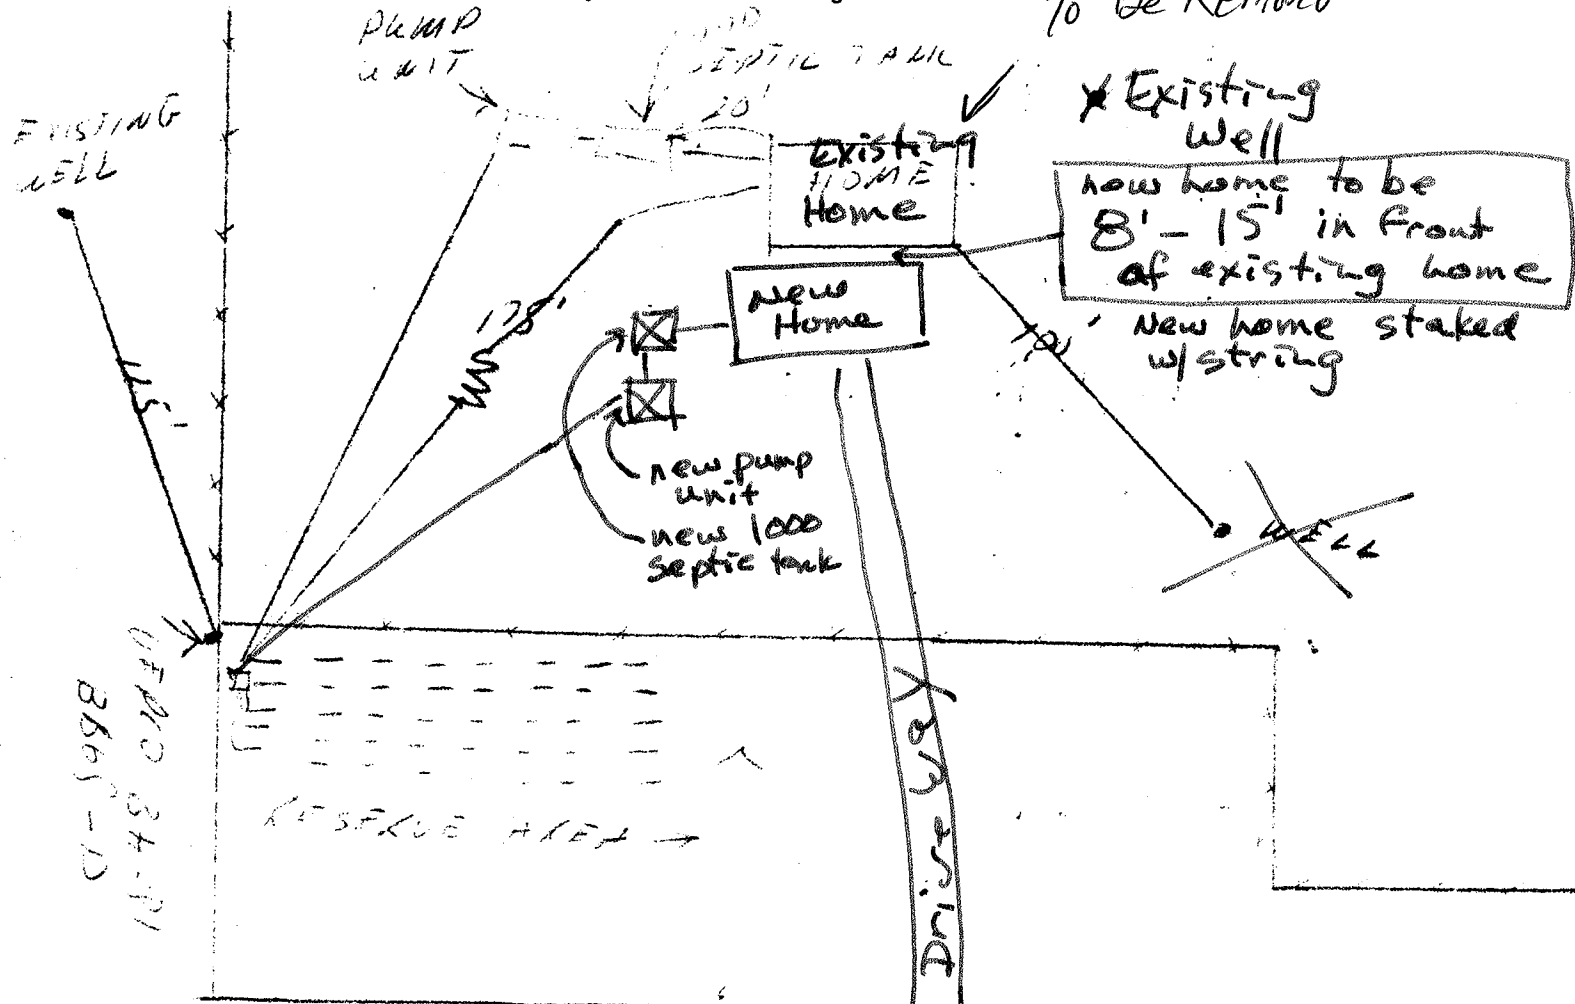 To be Removed
PUMP
UNIT
SEPTIC TANK
20'
EXISTING
WELL
Existing
Well
Existing
HOME
Home
new home to be
8' - 15' in front
of existing home
New home staked
w/string
New
Home
175'
115'
new pump
unit
new 1000
septic tank
WELL
RESERVE AREA
Drive way